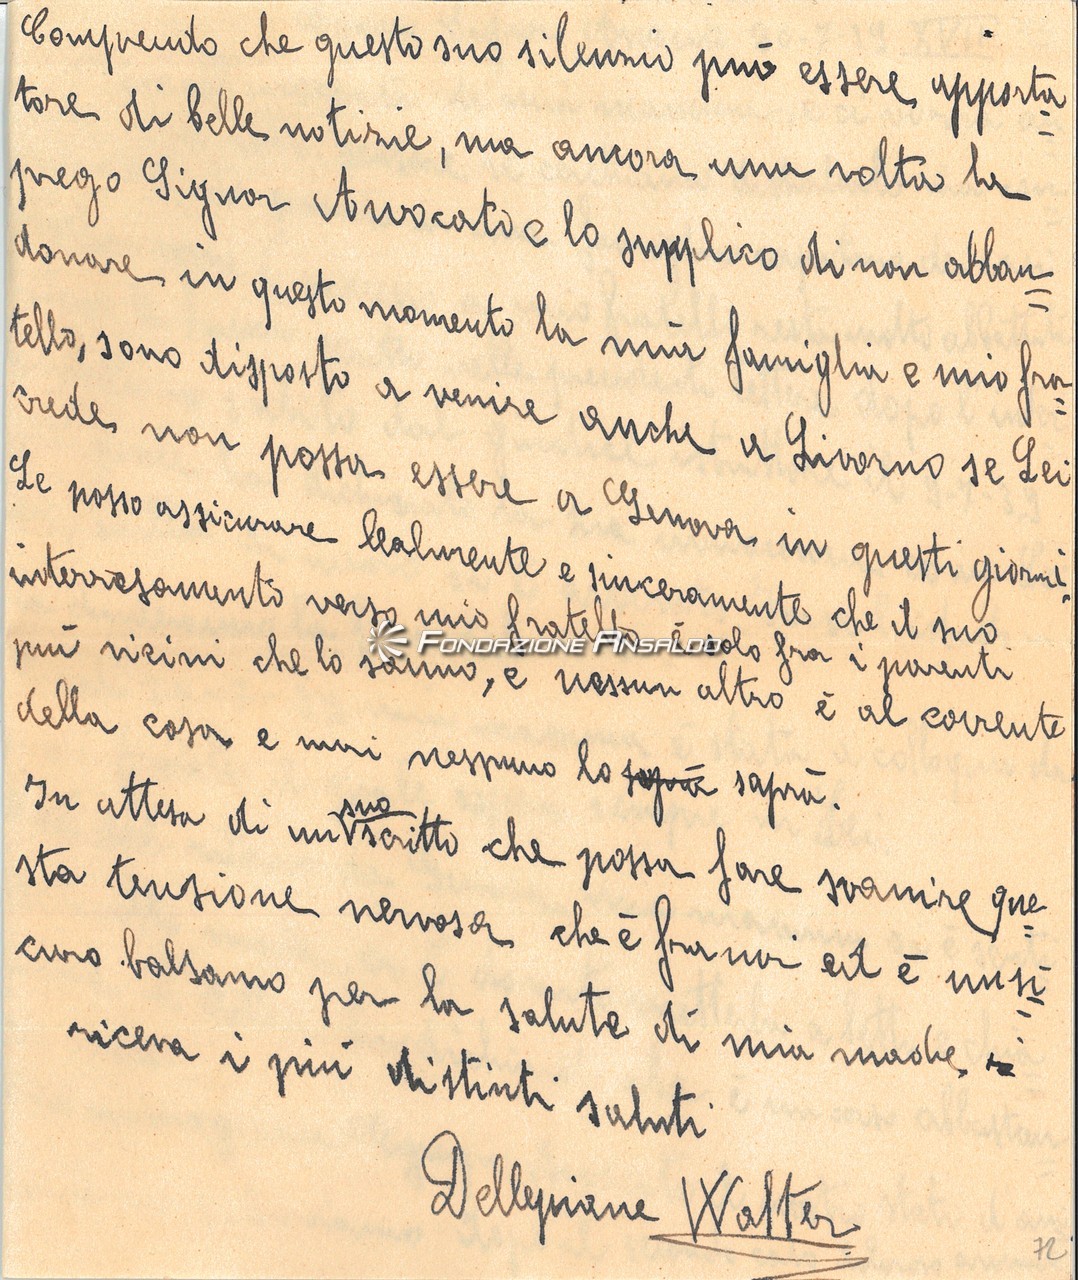 Comprendo che questo suo silenzio può essere apporta=
tore di belle notizie, ma ancora una volta la
prego Signor Avvocato e lo supplico di non abban=
donare in questo momento la mia famiglia e mio fra=
tello, sono disposto a venire anche a Livorno se Lei
crede non possa essere a Genova in questi giorni.
Le posso assicurare lealmente e sinceramente che il suo
interresamento verso mio fratello è solo fra i parenti
più vicini che lo sanno, e nessun altro è al corrente
della cosa e mai nessuno lo saprà saprà.
In attesa di un suo scritto che possa fare svanire que=
sta tensione nervosa che è fra noi ed è un si=
curo balsamo per la salute di mia madre,
riceva i più distinti saluti
Dellepiane Walter
72
FONDAZIONE ANSALDO